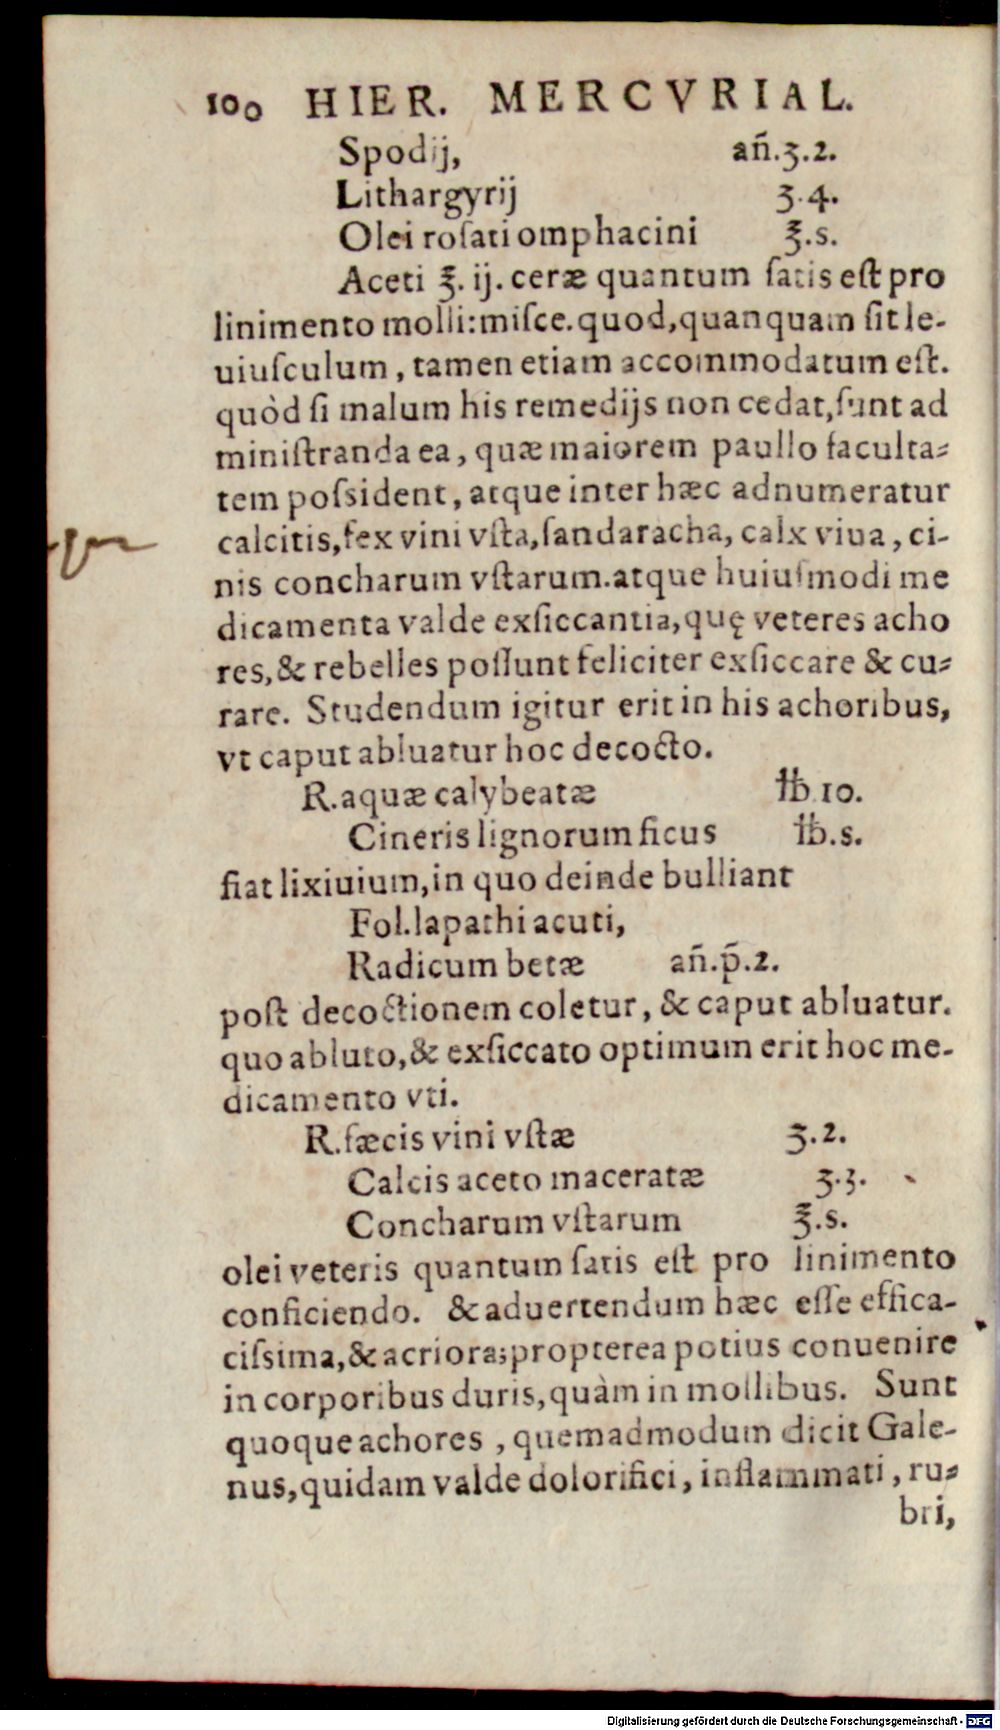 100 HIER. MERCVRIAL.
Spodij, añ.ʒ.2.
Lithargyrij ʒ.4.
Olei roſati omphacini ℥.s.
Aceti ℥. ij. ceræ quantum ſatis eſt pro
linimento molli: miſce. quod, quanquam ſit le-
uiuſculum, tamen etiam accommodatum eſt.
quòd ſi malum his remedijs non cedat, ſunt ad
miniſtranda ea, quæ maiorem paullo faculta-
tem poſsident, atque inter hæc adnumeratur
calcitis, fex vini vſta, ſandaracha, calx viua, ci-
nis concharum vſtarum. atque huiuſmodi me
dicamenta valde exſiccantia, quę veteres acho
res, & rebelles poſſunt feliciter exſiccare & cu-
rare. Studendum igitur erit in his achoribus,
vt caput abluatur hoc decocto.
R. aquæ calybeatæ ℔.10.
Cineris lignorum ficus ℔.s.
fiat lixiuium, in quo deinde bulliant
Fol. lapathi acuti,
Radicum betæ añ.p̃.2.
poſt decoctionem coletur, & caput abluatur.
quo abluto, & exſiccato optimum erit hoc me-
dicamento vti.
R. fæcis vini vſtæ ʒ.2.
Calcis aceto maceratæ ʒ.3.
Concharum vſtarum ℥.s.
olei veteris quantum ſatis eſt pro linimento
conficiendo. & aduertendum hæc eſſe effica-
ciſsima, & acriora; propterea potius conuenire
in corporibus duris, quàm in mollibus. Sunt
quoque achores, quemadmodum dicit Gale-
nus, quidam valde dolorifici, inflammati, ru-
bri,
Digitalisierung gefördert durch die Deutsche Forschungsgemeinschaft - DFG